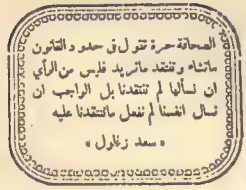 الصحافة حرة تقول في حدود القانون
ماتشاء وتنتقد ماتريد فليس من الرأي
ان نسألها لم تنتقدنا بل الواجب ان
نسأل انفسنا لم نفعل ماتنتقدنا عليه
« سعد زغلول »